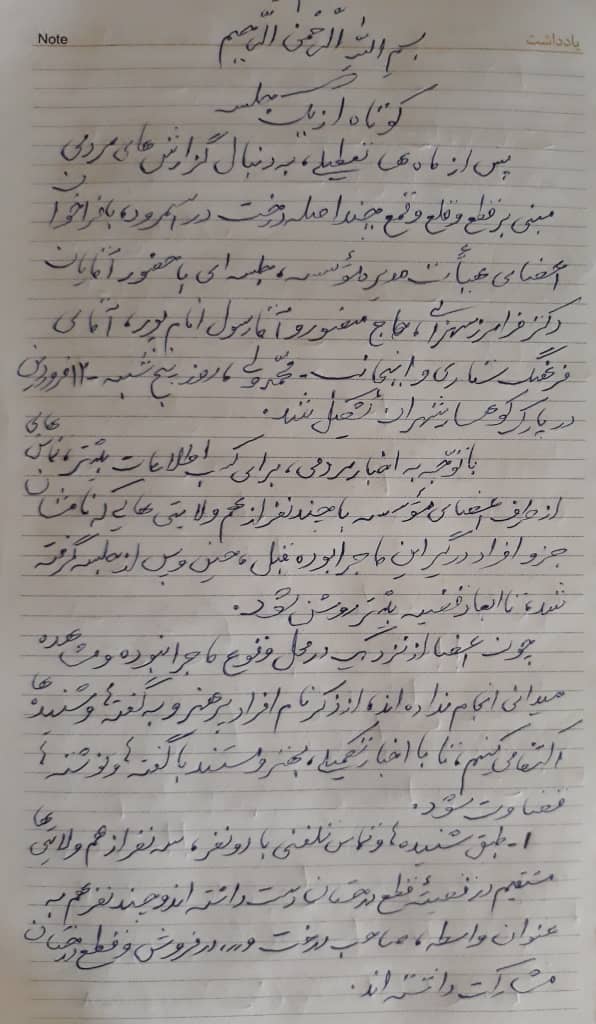 Note
یادداشت
بسم الله الرحمن الرحیم
کوتاه از یک جلسه
پس از ماه ها تعطیلی، به دنبال گزارش های مردمی
مبنی بر قطع و قلع و قمع چند اصله درخت در اسمرود، با فراخوان
اعضای هیأت مدیره مؤسسه، جلسه ای با حضور آقایان
دکتر فرامرز سهرابی، حاج منصور و آقا رسول امام پور، آقای
فرهنگ ستاری و اینجانب - محمد ولی، روز پنج شنبه - ۱۲ فروردین
در پارک کوهسار شهران تشکیل شد.
با توجه به اخبار مردمی، برای کسب اطلاعات بیشتر، تماس هایی
از طرف اعضای مؤسسه با چند نفر از هم ولایتی هایی که نامشان
جزو افراد درگیر این ماجرا بوده قبل، حین و پس از جلسه گرفته
شد، تا ابعاد قضیه بیشتر روشن شود.
چون اعضا از نزدیک در محل وقوع ماجرا نبوده و مشاهده
میدانی انجام نداده اند، از ذکر نام افراد پرهیز و به گفته ها و شنیده ها
اکتفا می کنیم، تا با اخبار تکمیلی، بهتر و مستند با گفته ها و نوشته ها
قضاوت شود.
۱- طبق شنیده ها و تماس تلفنی با دو نفر، سه نفر از هم ولایتی ها
مستقیم در قضیهٔ قطع درختان دست داشته اند و چند نفر هم به
عنوان واسطه، صاحب درخت و... در فروش و قطع درختان
مشارکت داشته اند.